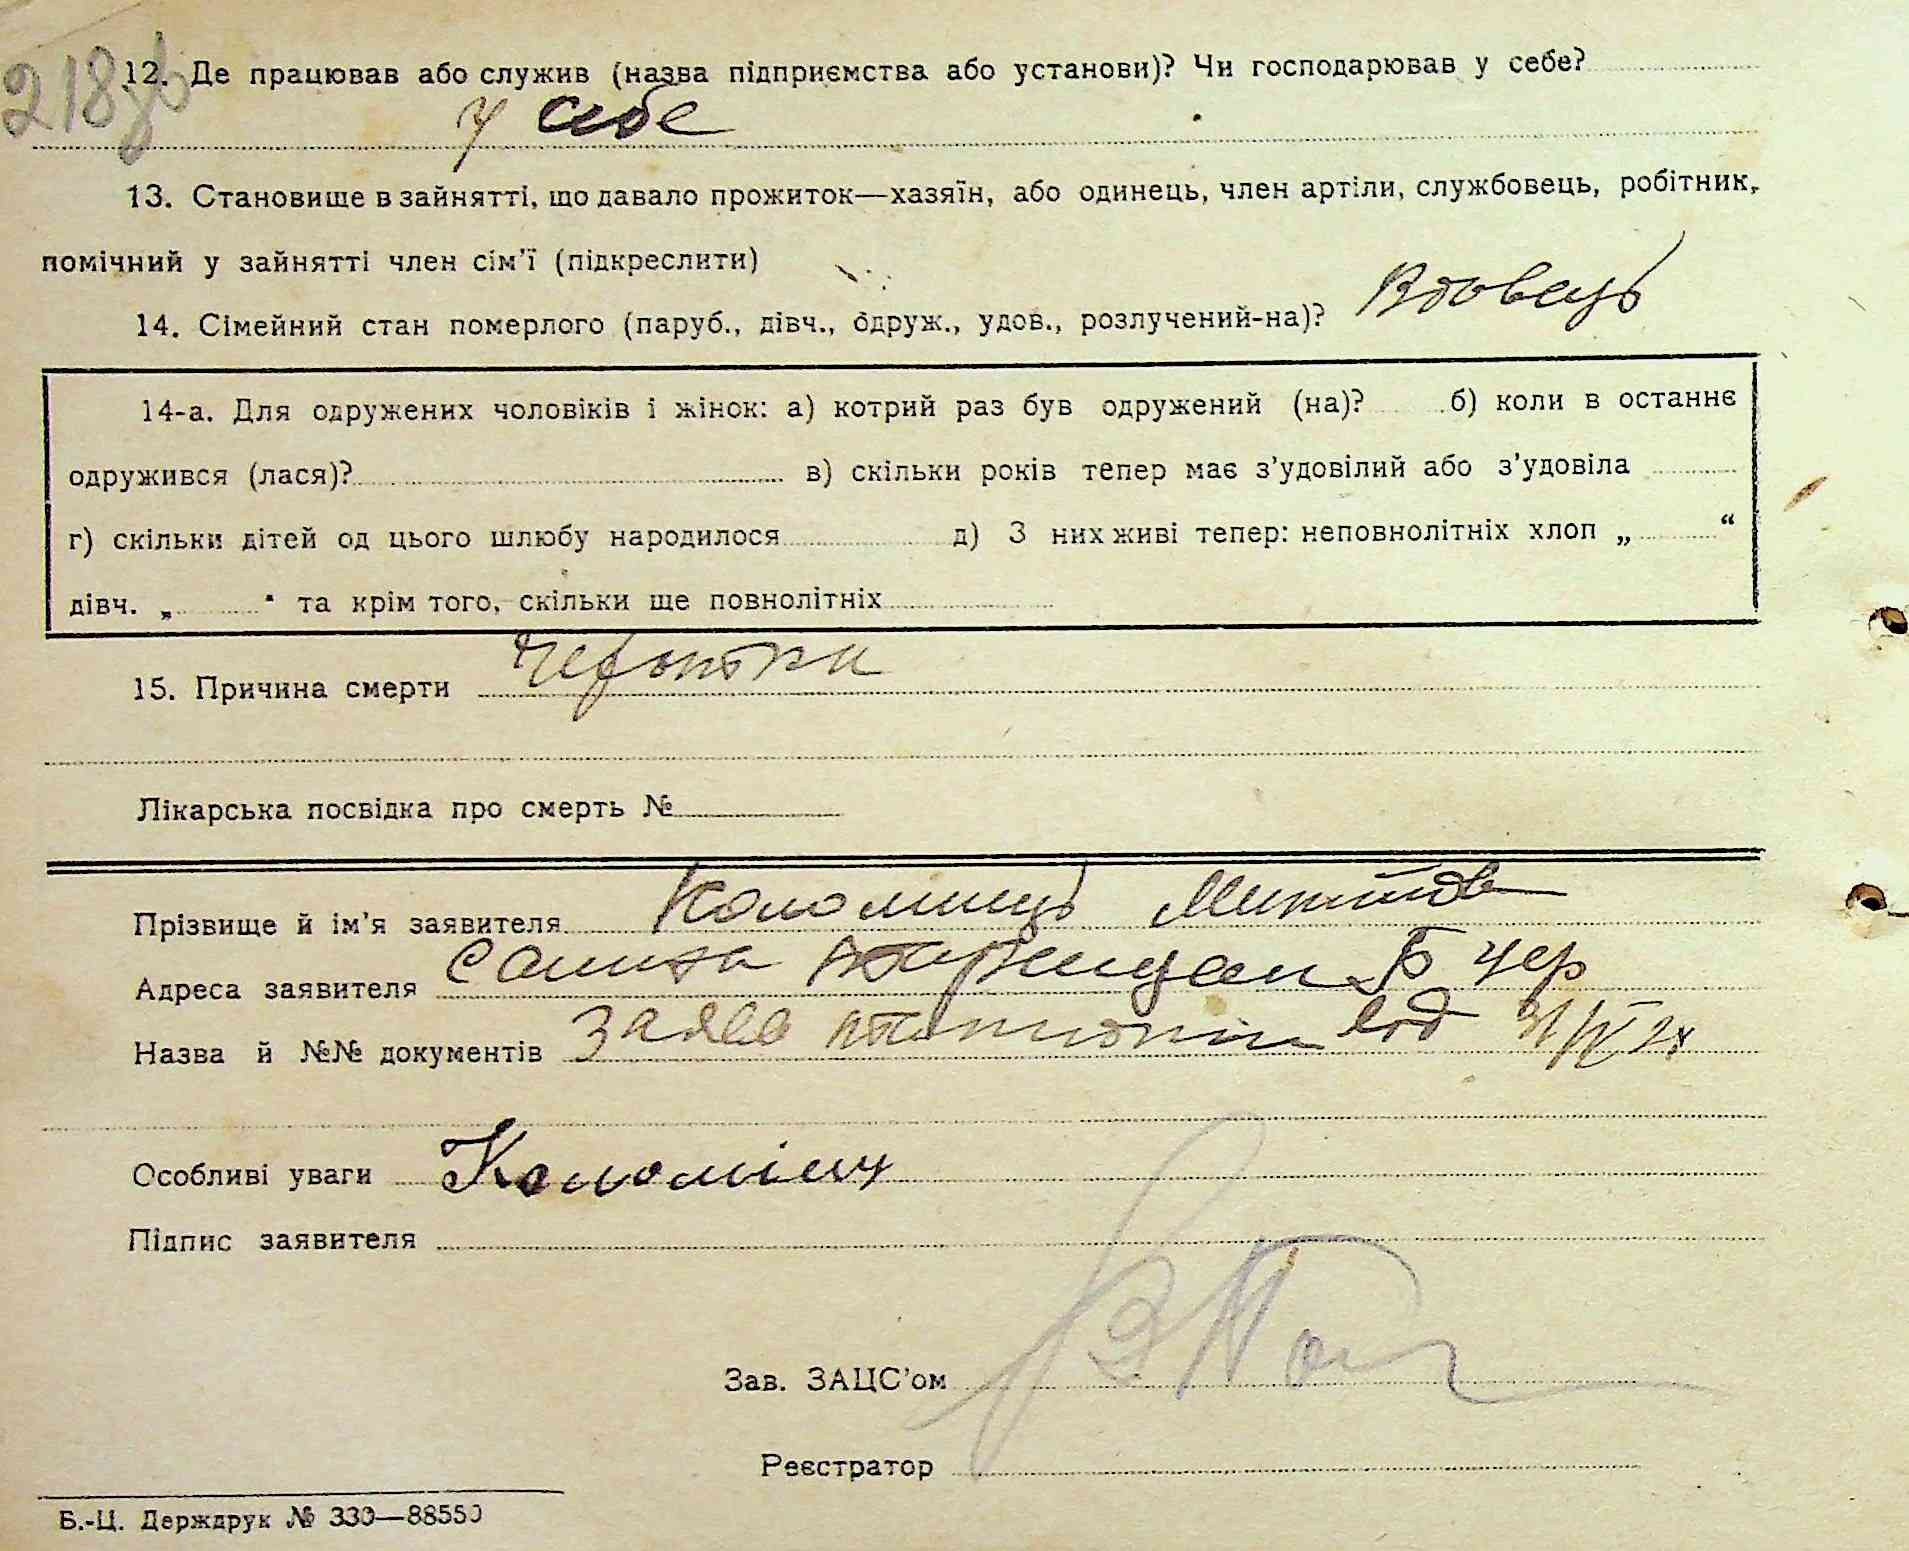 218зв
12. Де працював або служив (назва підприємства або установи)? Чи господарював у себе?
у себе
13. Становище в зайнятті, що давало прожиток—хазяїн, або одинець, член артіли, службовець, робітник,
помічний у зайнятті член сім'ї (підкреслити)
14. Сімейний стан померлого (паруб., дівч., одруж., удов., розлучений-на)? Вдовець
14-а. Для одружених чоловіків і жінок: а) котрий раз був одружений (на)? б) коли в останнє
одружився (лася)? в) скільки років тепер має з'удовілий або з'удовіла
г) скільки дітей од цього шлюбу народилося д) З них живі тепер: неповнолітніх хлоп „ “
дівч. „ “ та крім того, скільки ще повнолітніх
15. Причина смерти
Лікарська посвідка про смерть №
Прізвище й ім'я заявителя Коломиець
Адреса заявителя Б Чер
Назва й №№ документів Заява від
Особливі уваги Коломієць
Підпис заявителя
Зав. ЗАЦС'ом
Реєстратор
Б.-Ц. Держдрук № 330—88550